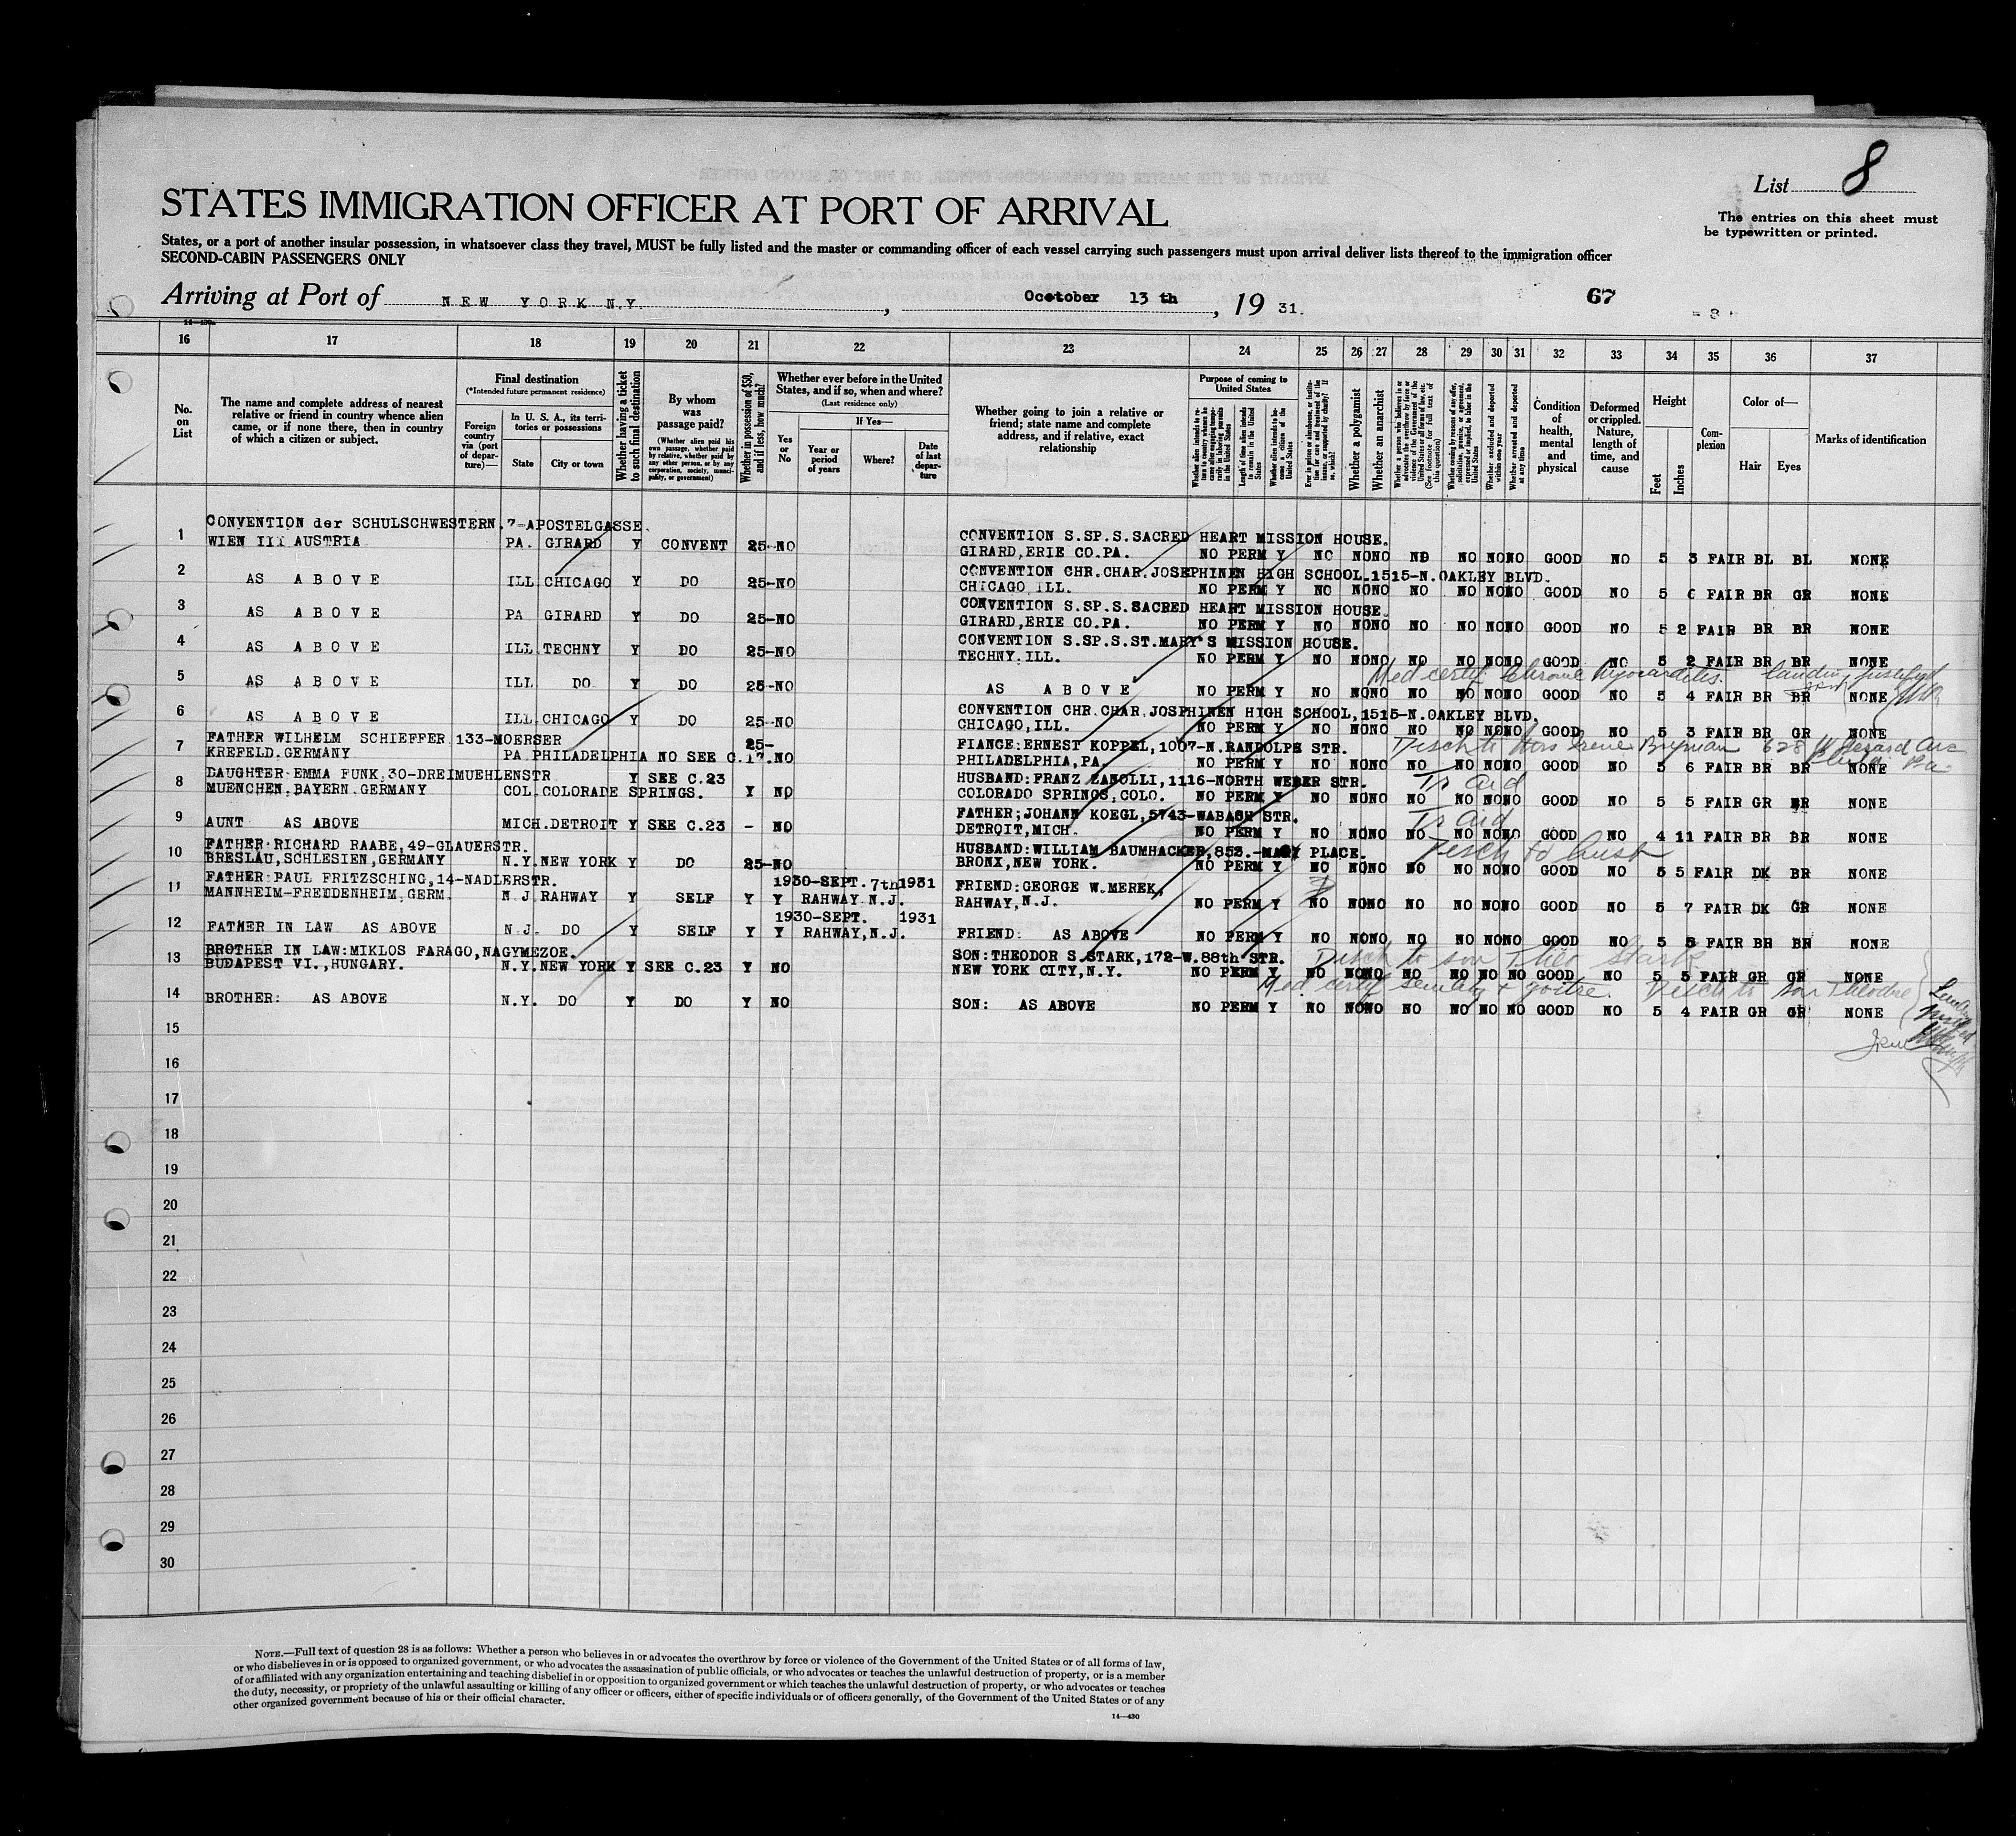 List 8
STATES IMMIGRATION OFFICER AT PORT OF ARRIVAL
The entries on this sheet must
be typewritten or printed.
States, or a port of another insular possession, in whatsoever class they travel, MUST be fully listed and the master or commanding officer of each vessel carrying such passengers must upon arrival deliver lists thereof to the immigration officer
SECOND-CABIN PASSENGERS ONLY
Arriving at Port of NEW YORK N.Y. , Ocotober 13 th , 19 31.
67
- 8 -
16 17 18 19 20 21 22 23 24 25 26 27 28 29 30 31 32 33 34 35 36 37
No. on List
The name and complete address of nearest relative or friend in country whence alien came, or if none there, then in country of which a citizen or subject.
Final destination
(*Intended future permanent residence)
Foreign country via (port of departure)—
In U. S. A., its territories or possessions
State City or town
Whether having a ticket to such final destination
By whom was passage paid?
(Whether alien paid his own passage, whether paid by relative, whether paid by any other person, or by any corporation, society, municipality, or government)
Whether in possession of $50, and if less, how much?
Whether ever before in the United States, and if so, when and where?
(Last residence only)
Yes or No
If Yes—
Year or period of years
Where?
Date of last departure
Whether going to join a relative or friend; state name and complete address, and if relative, exact relationship
Purpose of coming to United States
Length of time alien intends to remain in the United States
Whether alien intends to become a citizen of the United States
Whether a polygamist
Whether an anarchist
(See footnote for full text of this question)
Whether excluded and deported within one year
Whether arrested and deported at any time
Condition of health, mental and physical
Deformed or crippled. Nature, length of time, and cause
Height
Feet Inches
Complexion
Color of—
Hair Eyes
Marks of identification
CONVENTION der SCHULSCHWESTERN,7-APOSTELGASSE. CONVENTION S.SP.S.SACRED HEART MISSION HOUSE.
1 WIEN III AUSTRIA PA. GIRARD Y CONVENT 25-NO GIRARD,ERIE CO.PA. NO PERM Y NO NONO NO NO NONO GOOD NO 5 3 FAIR BL BL NONE
CONVENTION CHR.CHAR.JOSEPHINEN HIGH SCHOOL.1515-N.OAKLEY BLVD.
2 AS ABOVE ILL CHICAGO Y DO 25-NO CHICAGO ILL. NO PERM Y NO NONO NO NO NONO GOOD NO 5 6 FAIR BR GR NONE
CONVENTION S.SP.S.SACRED HEART MISSION HOUSE.
3 AS ABOVE PA GIRARD Y DO 25-NO GIRARD,ERIE CO.PA. NO PERM Y NO NONO NO NO NONO GOOD NO 5 2 FAIR BR BR NONE
CONVENTION S.SP.S.ST.MARY'S MISSION HOUSE.
4 AS ABOVE ILL TECHNY Y DO 25-NO TECHNY.ILL. NO PERM Y NO NONO NO NO NONO GOOD NO 5 2 FAIR BR BR NONE
Med certif. Chronic Myocarditis. landing justified
5 AS ABOVE ILL DO Y DO 25-NO AS ABOVE NO PERM Y NO NONO NO NO NONO GOOD NO 5 4 FAIR BR BR NONE
CONVENTION CHR.CHAR.JOSPHINEN HIGH SCHOOL,1515-N.OAKLEY BLVD.
6 AS ABOVE ILL.CHICAGO Y DO 25-NO CHICAGO,ILL. NO PERM Y NO NONO NO NO NONO GOOD NO 5 3 FAIR BR GR NONE
FATHER WILHELM SCHIEFFER 133-MOERSER 25- FIANCE:ERNEST KOPPEL,1007-N.RANDOLPH STR. Disch to Mrs Irene 628 W Gerard Ave
7 KREFELD.GERMANY PA PHILADELPHIA NO SEE C.17.NO PHILADELPHIA,PA. NO PERM Y NO NONO NO NO NONO GOOD NO 5 6 FAIR BR BR NONE
DAUGHTER EMMA FUNK 30-DREIMUEHLENSTR Y SEE C.23 HUSBAND:FRANZ ZANOLLI,1116-NORTH WEBER STR. Tr aid
8 MUENCHEN.BAYERN.GERMANY COL.COLORADE SPRINGS. Y NO COLORADO SPRINGS,COLO. NO PERM Y NO NONO NO NO NONO GOOD NO 5 5 FAIR GR BR NONE
FATHER;JOHANN KOEGL,5743-WABASH STR. Tr aid
9 AUNT AS ABOVE MICH.DETROIT Y SEE C.23 - NO DETROIT,MICH. NO PERM Y NO NONO NO NO NONO GOOD NO 4 11 FAIR BR BR NONE
FATHER RICHARD RAABE,49-GLAUERSTR. HUSBAND:WILLIAM BAUMHACKER,853.-MACY PLACE. Disch to husb
10 BRESLAU,SCHLESIEN,GERMANY N.Y.NEW YORK Y DO 25-NO BRONX,NEW YORK. NO PERM Y NO NONO NO NO NONO GOOD NO 5 5 FAIR DK BR NONE
FATHER PAUL FRITZSCHING,14-NADLERSTR. 1930-SEPT.7th1931 FRIEND:GEORGE W.MEREK,
11 MANNHEIM-FREUDENHEIM.GERM. N J RAHWAY Y SELF Y Y RAHWAY.N.J. RAHWAY,N.J. NO PERM Y NO NONO NO NO NONO GOOD NO 5 7 FAIR DK GR NONE
1930-SEPT. 1931
12 FATHER IN LAW AS ABOVE N J. DO Y SELF Y Y RAHWAY,N.J. FRIEND: AS ABOVE NO PERM Y NO NONO NO NO NONO GOOD NO 5 5 FAIR BR BR NONE
BROTHER IN LAW:MIKLOS FARAGO,NAGYMEZOE. SON:THEODOR S.STARK,172-W.88th STR. Disch to son Theo Stark
13 BUDAPEST VI.,HUNGARY. N.Y.NEW YORK Y SEE C.23 Y NO NEW YORK CITY,N.Y. NO PERM Y NO NONO NO NO NO NO GOOD NO 5 5 FAIR GR GR NONE
Med certif senility + goitre. Disch to son Theodre
14 BROTHER: AS ABOVE N.Y. DO Y DO Y NO SON: AS ABOVE NO PERM Y NO NONO NO NO NO NO GOOD NO 5 4 FAIR GR GR NONE
15
16
17
18
19
20
21
22
23
24
25
26
27
28
29
30
NOTE.—Full text of question 28 is as follows: Whether a person who believes in or advocates the overthrow by force or violence of the Government of the United States or of all forms of law,
or who disbelieves in or is opposed to organized government, or who advocates the assassination of public officials, or who advocates or teaches the unlawful destruction of property, or is a member
of or affiliated with any organization entertaining and teaching disbelief in or opposition to organized government or which teaches the unlawful destruction of property, or who advocates or teaches
the duty, necessity, or propriety of the unlawful assaulting or killing of any officer or officers, either of specific individuals or of officers generally, of the Government of the United States or of any
other organized government because of his or their official character.
14—430